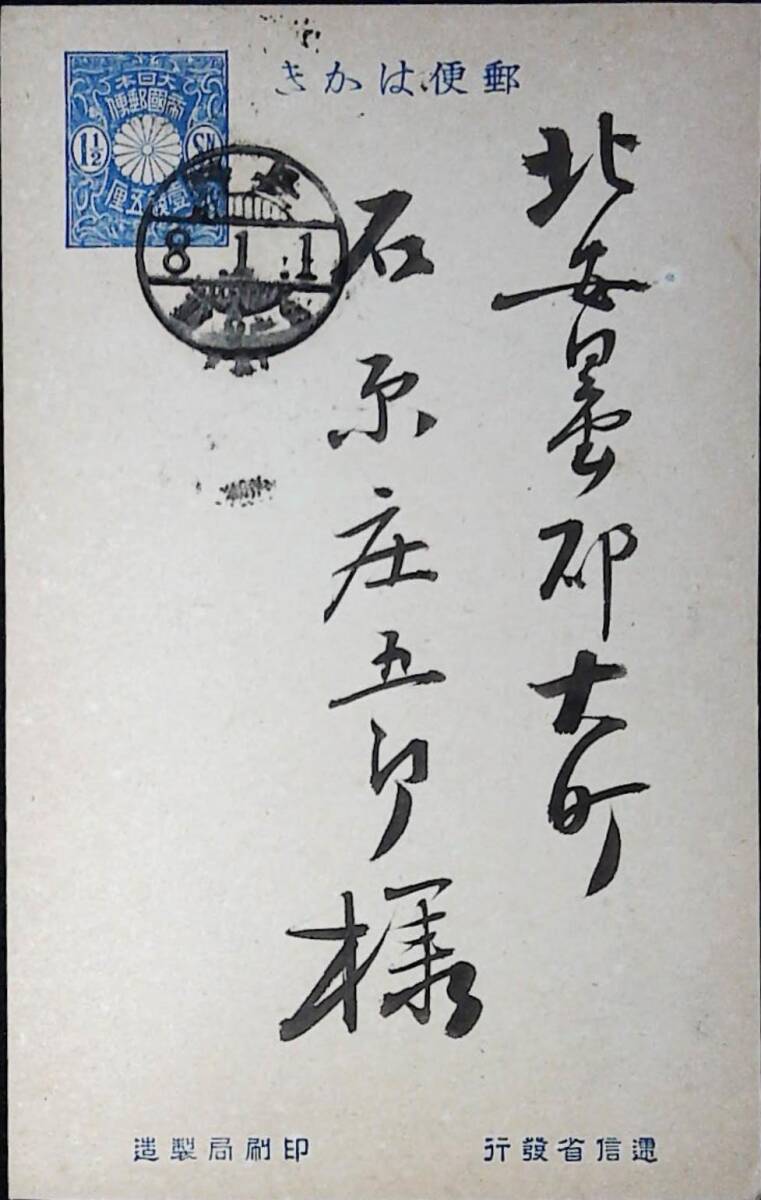 郵便はかき
大日本
帝國郵便
1½ SN
壹錢五厘
8.1.1
北安曇郡大町
石原庄五郎様
遞信省發行
印刷局製造